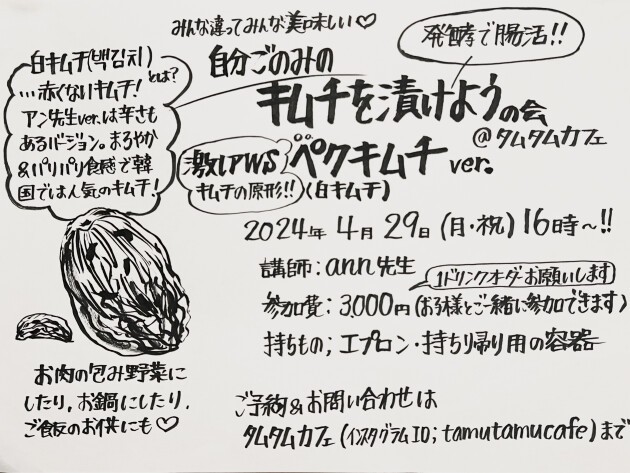 みんな違ってみんな美味しい♡
自分ごのみの
キムチを漬けようの会
@タムタムカフェ
発酵で腸活!!
激レアWS
キムチの原形!!
ペクキムチ ver.
(白キムチ)
白キムチ(백김치)とは?
…赤くないキムチ!
アン先生ver.は辛さも
あるバージョン。まろやか
&パリパリ食感で韓
国では人気のキムチ!
2024年 4月 29日 (月・祝) 16時〜!!
講師:ann先生
1ドリンクオーダーお願いします
参加費:3,000円(お子様とご一緒に参加できます)
持ちもの;エプロン・持ち帰り用の容器
お肉の包み野菜に
したり。お鍋にしたり。
ご飯のお供にも♡
ご予約&お問い合わせは
タムタムカフェ(インスタグラムID;tamutamucafe)まで